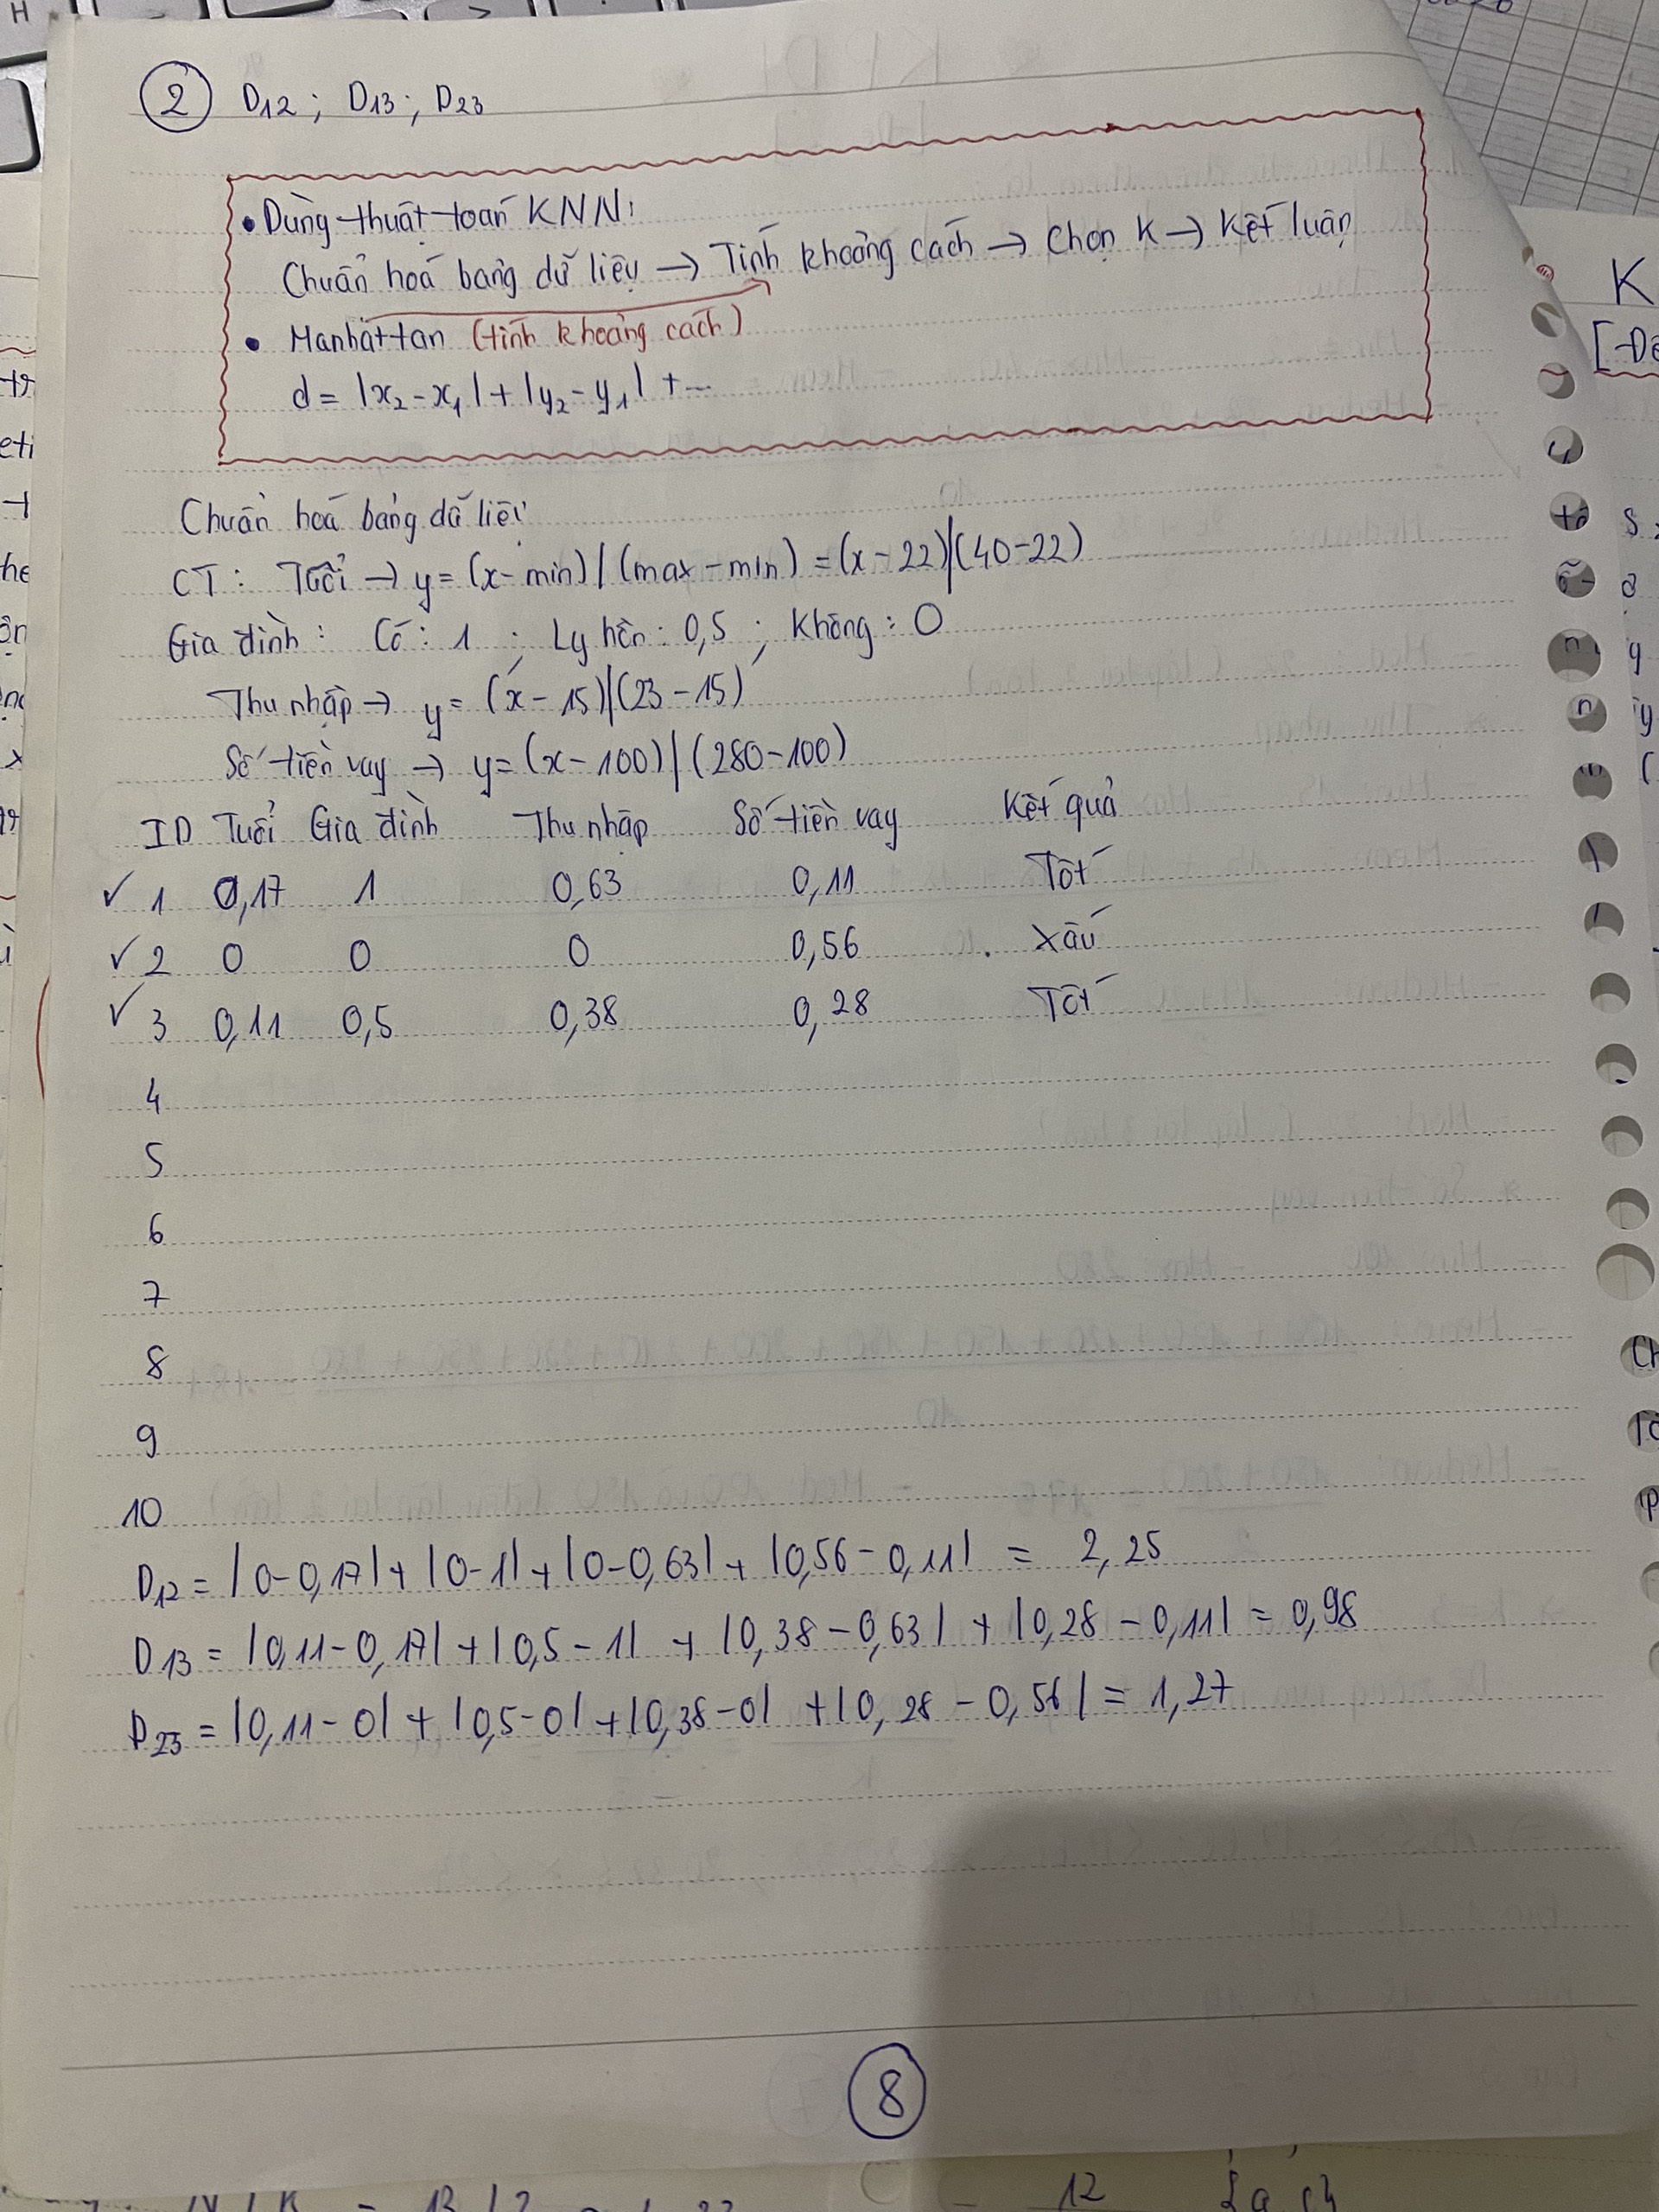 2 D12 ; D13 ; D23
• Dùng thuật toán KNN:
Chuẩn hoá bảng dữ liệu → Tính khoảng cách → Chọn K → Kết luận
• Manhattan (tính khoảng cách)
d = |x2 - x1| + |y2 - y1| + ...
Chuẩn hoá bảng dữ liệu
CT : Tuổi → y = (x - min) / (max - min) = (x - 22)/(40-22)
Gia đình : Có : 1 ; Ly hôn : 0,5 ; Không : 0
Thu nhập → y = (x - 15)/(23 - 15)
Số tiền vay → y = (x - 100) / (280-100)
ID Tuổi Gia đình Thu nhập Số tiền vay Kết quả
✓ 1 0,17 1 0,63 0,11 Tốt
✓ 2 0 0 0 0,56 Xấu
✓ 3 0,11 0,5 0,38 0,28 Tốt
4
5
6
7
8
9
10
D12 = |0-0,17| + |0-1| + |0-0,63| + |0,56 - 0,11| = 2,25
D13 = |0,11-0,17| + |0,5 - 1| + |0,38 - 0,63| + |0,28 - 0,11| = 0,98
D23 = |0,11-0| + |0,5-0| + |0,38-0| + |0,28 - 0,56| = 1,27
8